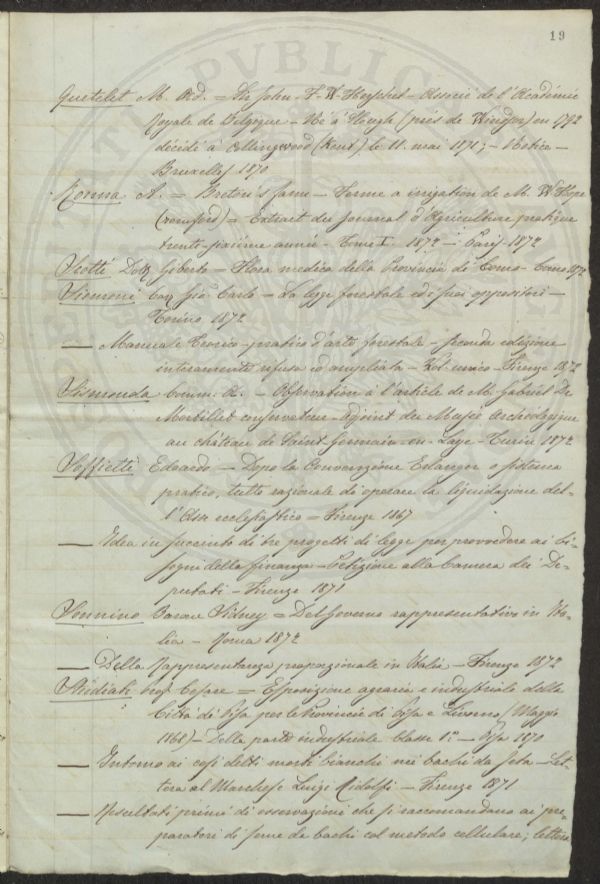 19
Quetelet M. Ad. = Sir John. F. W. Herschel - Associé de l'Académie
Royale de Belgique - Né à Slough (près de Windsor) en 1792
décédé à Collingwood (Kent), le 11. mai 1871; - Notice -
Bruxelles 1870
Ronna A. = Breton's farm - Ferme a irrigation de M. W Hope
(romford) = Extract du journal d'Agriculture pratique
trente-sixième année - Tome I. 1872 - Paris 1872
Scotti Dott Giberto = Flora medica della Provincia di Como - Como 1872
Siemoni Cav Gio Carlo = La legge forestale ed i suoi oppositori -
Torino 1872
— Manuale teorico-pratico d'arte forestale - seconda edizione
interamente rifusa ed ampliata - Vol. unico - Firenze 1872
Sismonda Comm: A. - Observation à l'article de M. Gabriel De
Mortillet conservateur-adjoint du Musée Archéologique
au château de Saint Germain-en-Laye - Turin 1872
Soffietti Edoardo - Dopo la Convenzione Erlanger o sistema
pratico, tutto razionale di operare la liquidazione del-
l'Asse ecclesiastico = Firenze 1867
— Idea in succinto di tre progetti di legge per provvedere ai bi-
sogni della finanza - Petizione alla Camera dei De-
putati - Firenze 1871
Sonnino Barone Sidney = Del Governo rappresentativo in Ita-
lia - Roma 1872
— Della Rappresentanza proporzionale in Italia - Firenze 1872
Studiati Prof Cesare = Esposizione agraria e industriale della
Città di Pisa per le Provincie di Pisa e Livorno (Maggio
1868) - Della parte industriale Classe 1ª - Pisa 1870
— Intorno ai così detti morti bianchi nei bachi da seta - Let-
tera al Marchese Luigi Ridolfi - Firenze 1871
— Resultati primi di osservazione che si raccomandano ai pre-
paratori di seme da bachi col metodo cellulare; lettera